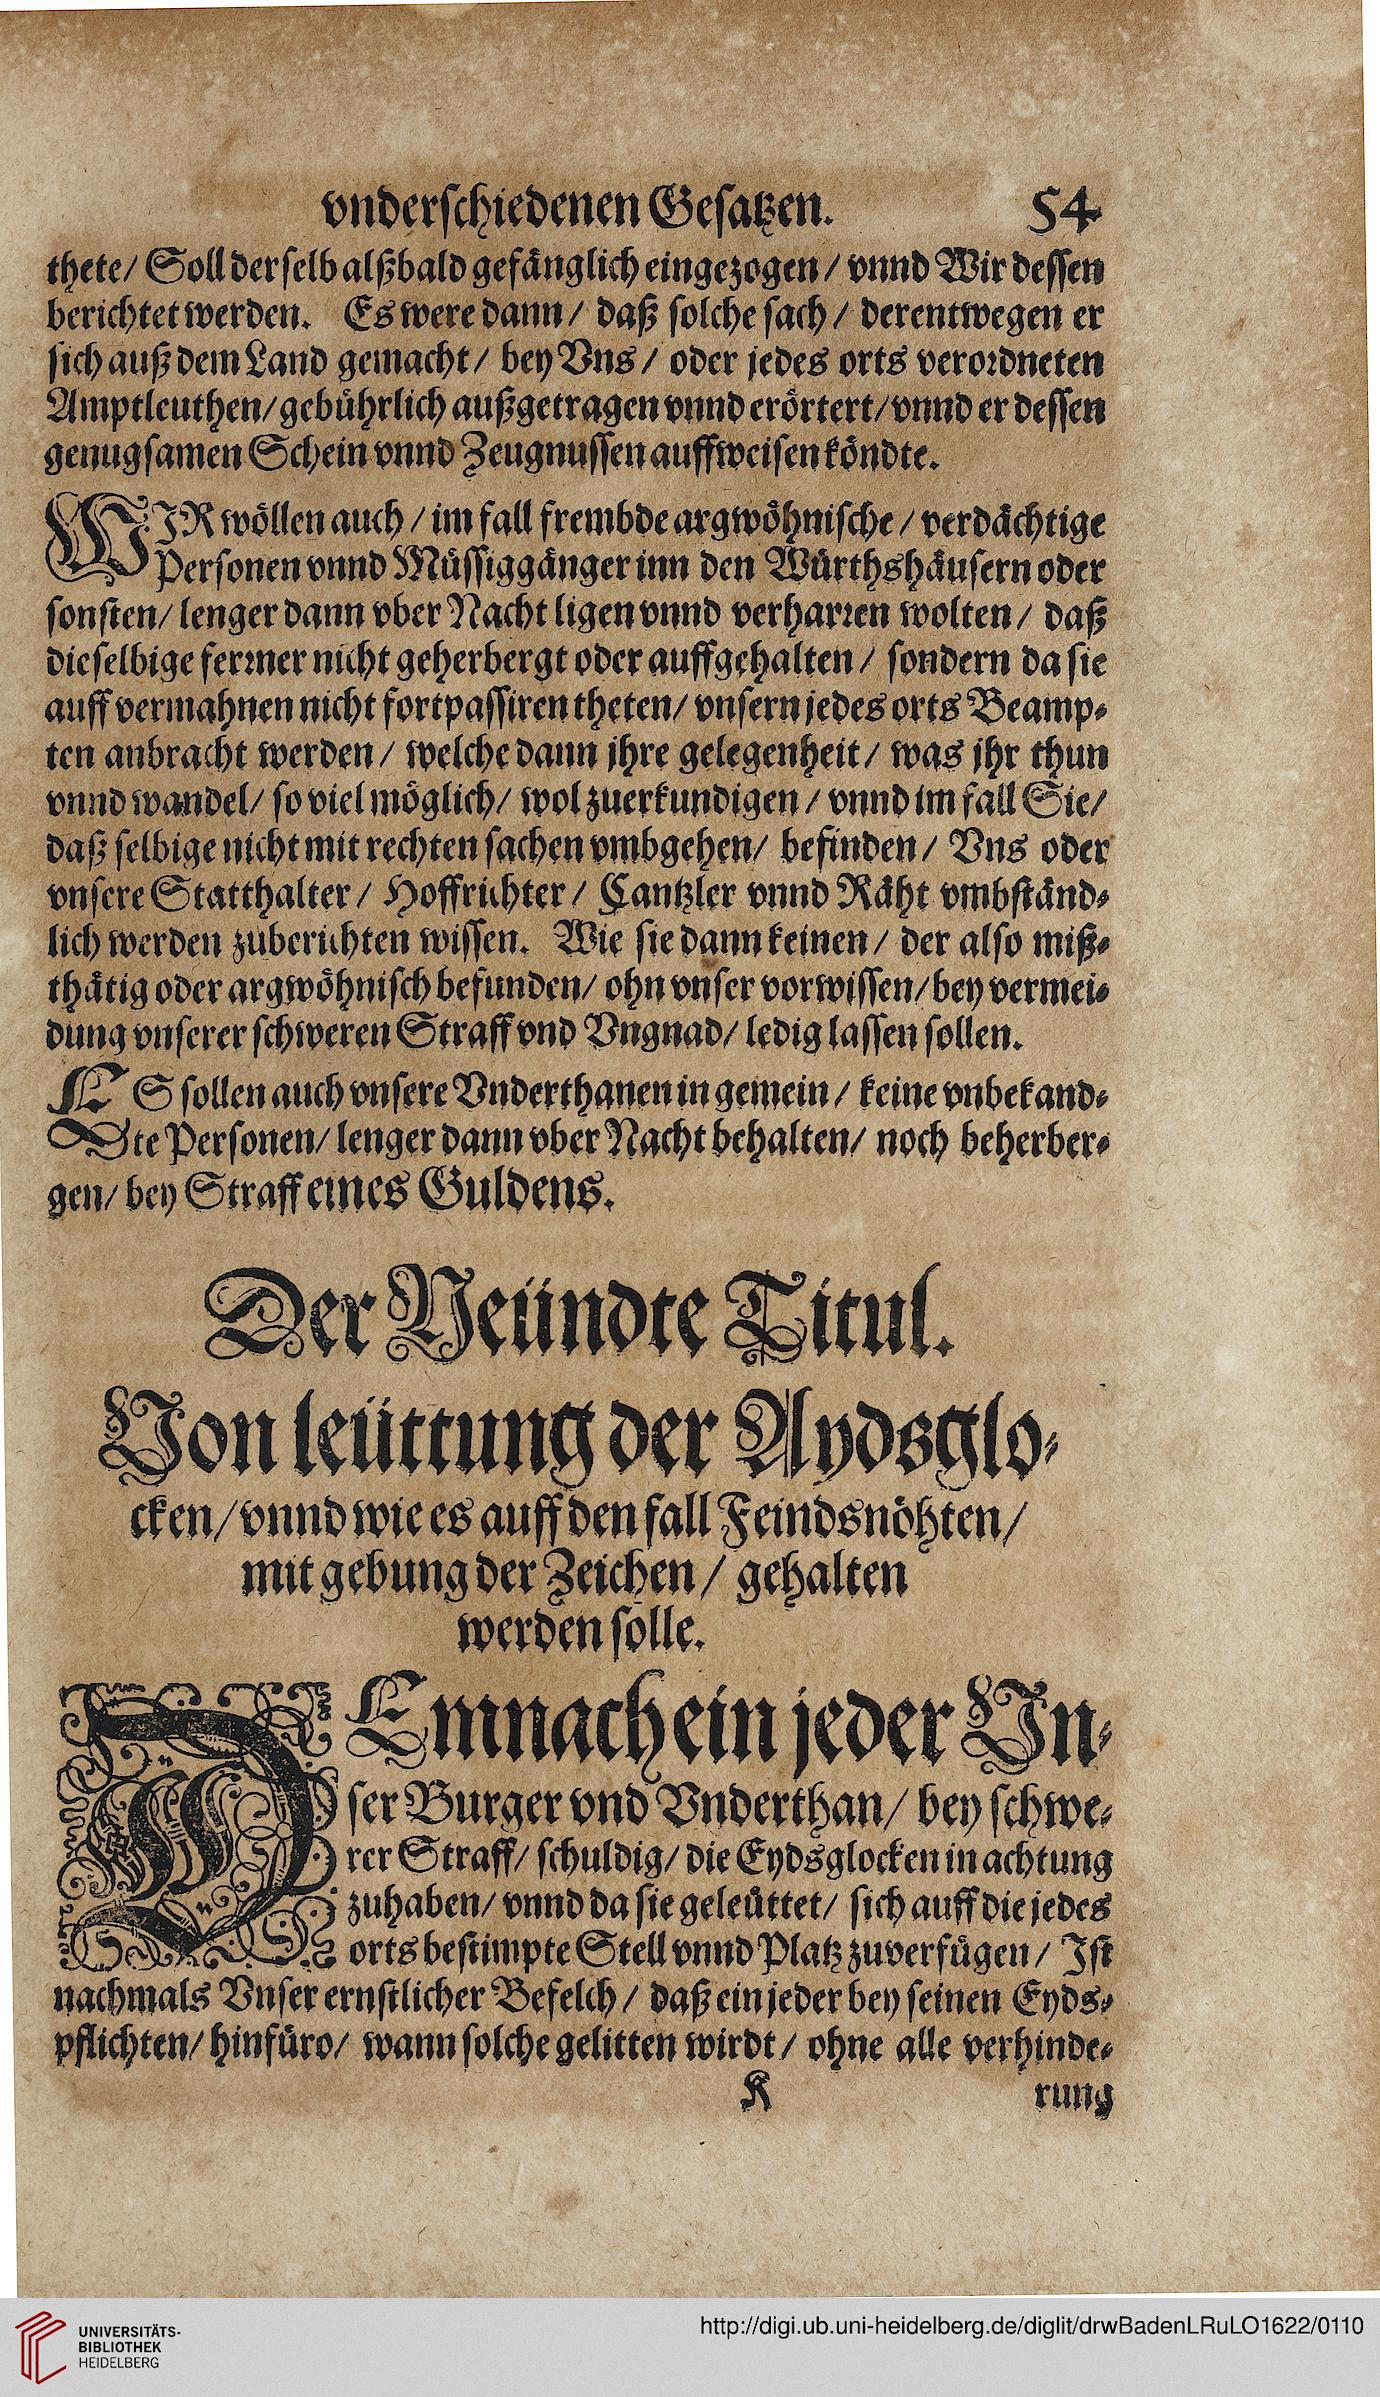 vnderschiedenen Gesatzen. 54
thete/ Soll derselb alßbald gefänglich eingezogen / vnnd Wir dessen
berichtet werden. Es were dann / daß solche sach / derentwegen er
sich auß dem Land gemacht / bey Vns / oder jedes orts verordneten
Amptleuthen/ gebührlich außgetragen vnnd erörtert/ vnnd er dessen
genugsamen Schein vnnd Zeugnussen auffweisen köndte.
WIR wöllen auch / im fall frembde argwöhnische / verdächtige
Personen vnnd Müssiggänger inn den Würthshäusern oder
sonsten/ lenger dann vber Nacht ligen vnnd verharren wolten / daß
dieselbige ferrner nicht geherbergt oder auffgehalten / sondern da sie
auff vermahnen nicht fortpassiren theten/ vnsern jedes orts Beamp-
ten anbracht werden / welche dann jhre gelegenheit / was jhr thun
vnnd wandel/ so viel möglich/ wol zuerkundigen / vnnd im fall Sie/
daß selbige nicht mit rechten sachen vmbgehen/ befinden / Vns oder
vnsere Statthalter / Hoffrichter / Cantzler vnnd Räht vmbständ-
lich werden zuberichten wissen. Wie sie dann keinen / der also miß-
thätig oder argwöhnisch befunden/ ohn vnser vorwissen/ bey vermei-
dung vnserer schweren Straff vnd Vngnad/ ledig lassen sollen.
ES sollen auch vnsere Vnderthanen in gemein / keine vnbekand-
te Personen/ lenger dann vber Nacht behalten/ noch beherber-
gen/ bey Straff eines Guldens.
Der Neündte Titul.
Von leüttung der Aydsglo-
cken/ vnnd wie es auff den fall Feindsnöhten/
mit gebung der Zeichen / gehalten
werden solle.
DEmnach ein jeder Vn-
ser Burger vnd Vnderthan/ bey schwe-
rer Straff/ schuldig/ die Eydsglocken in achtung
zuhaben/ vnnd da sie geleüttet/ sich auff die jedes
orts bestimpte Stell vnnd Platz zuverfügen / Ist
nachmals Vnser ernstlicher Befelch / daß ein jeder bey seinen Eyds-
pflichten/ hinfüro/ wann solche gelitten wirdt / ohne alle verhinde-
K rung
UNIVERSITÄTS-
BIBLIOTHEK
HEIDELBERG
http://digi.ub.uni-heidelberg.de/diglit/drwBadenLRuLO1622/0110